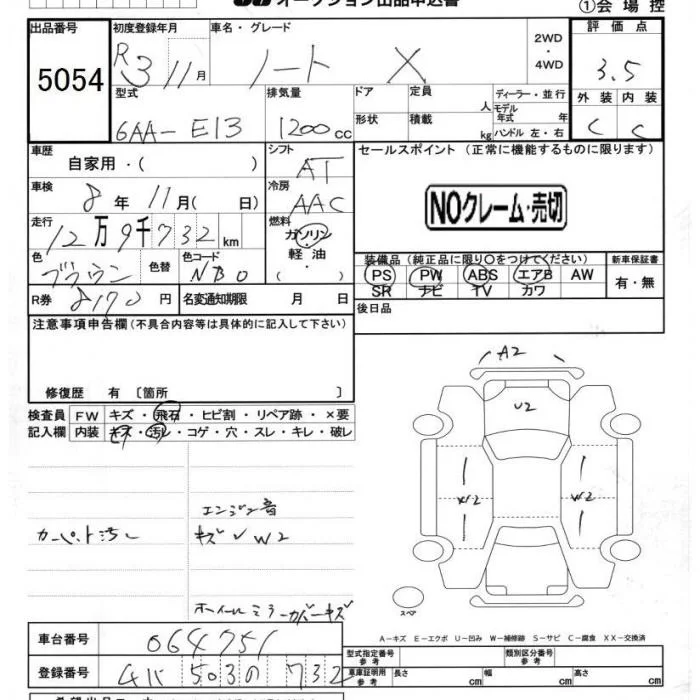 オークション出品申込書
①会場控
出品番号 初度登録年月 車名・グレード 評価点
5054 R3 11月 ノート X 2WD・4WD 3.5
型式 排気量 ドア 定員 人 ディーラー・並行 外装 内装
6AA-E13 1200cc 形状 積載 kg モデル年式 年 ハンドル 左・右 C C
車歴 シフト セールスポイント (正常に機能するものに限ります)
自家用・( ) AT
車検 8年 11月 ( 日) 冷房 AAC
NOクレーム・売切
走行 12万9千732km 燃料 ガソリン 軽油 ・( )
色 ブラウン 色替 色コード NB0
装備品 (純正品に限り○をつけてください) 新車保証書
PS PW ABS エアB AW 有・無
SR ナビ TV カワ
R券 8170円 名変通知期限 月 日
後日品
注意事項申告欄(不具合内容等は具体的に記入して下さい)
修復歴 有 〔箇所 〕
A2
U2
検査員 FW キズ・飛石・ヒビ割・リペア跡・×要
記入欄 内装 キズ・汚レ・コゲ・穴・スレ・キレ・破レ
W2 W2
エンジン音
カーペット汚レ キズ W2
ホイールミラーカバーキズ
スペア
A−キズ E−エクボ U−凹み W−補修跡 S−サビ C−腐食 XX−交換済
車台番号 064751
型式指定番号 参考 類別区分番号 参考
登録番号 503の732
車庫証明用 参考 長さ cm 幅 cm 高さ cm